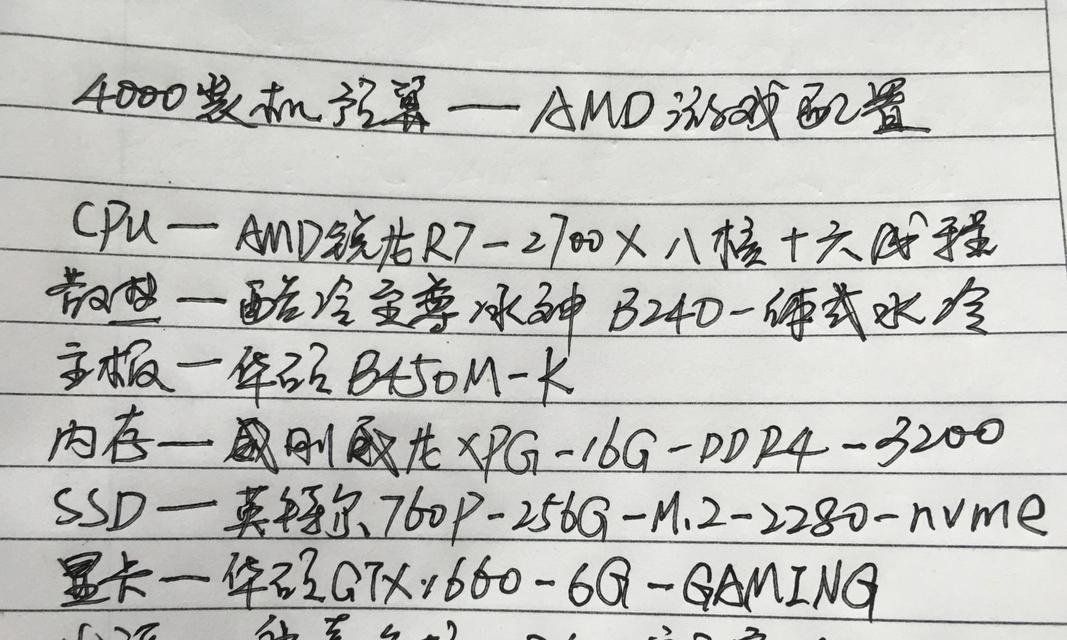 4000装机预算—AMD游戏配置
CPU—AMD锐龙R7-2700X八核十六线程
散热—酷冷至尊冰神B240一体式水冷
主板—华硕B450M-K
内存—威刚威龙XPG-16G-DDR4-3200
SSD—英特尔760P-256G-M.2-2280-nvme
显卡—华硕GTX1660-6G-GAMING